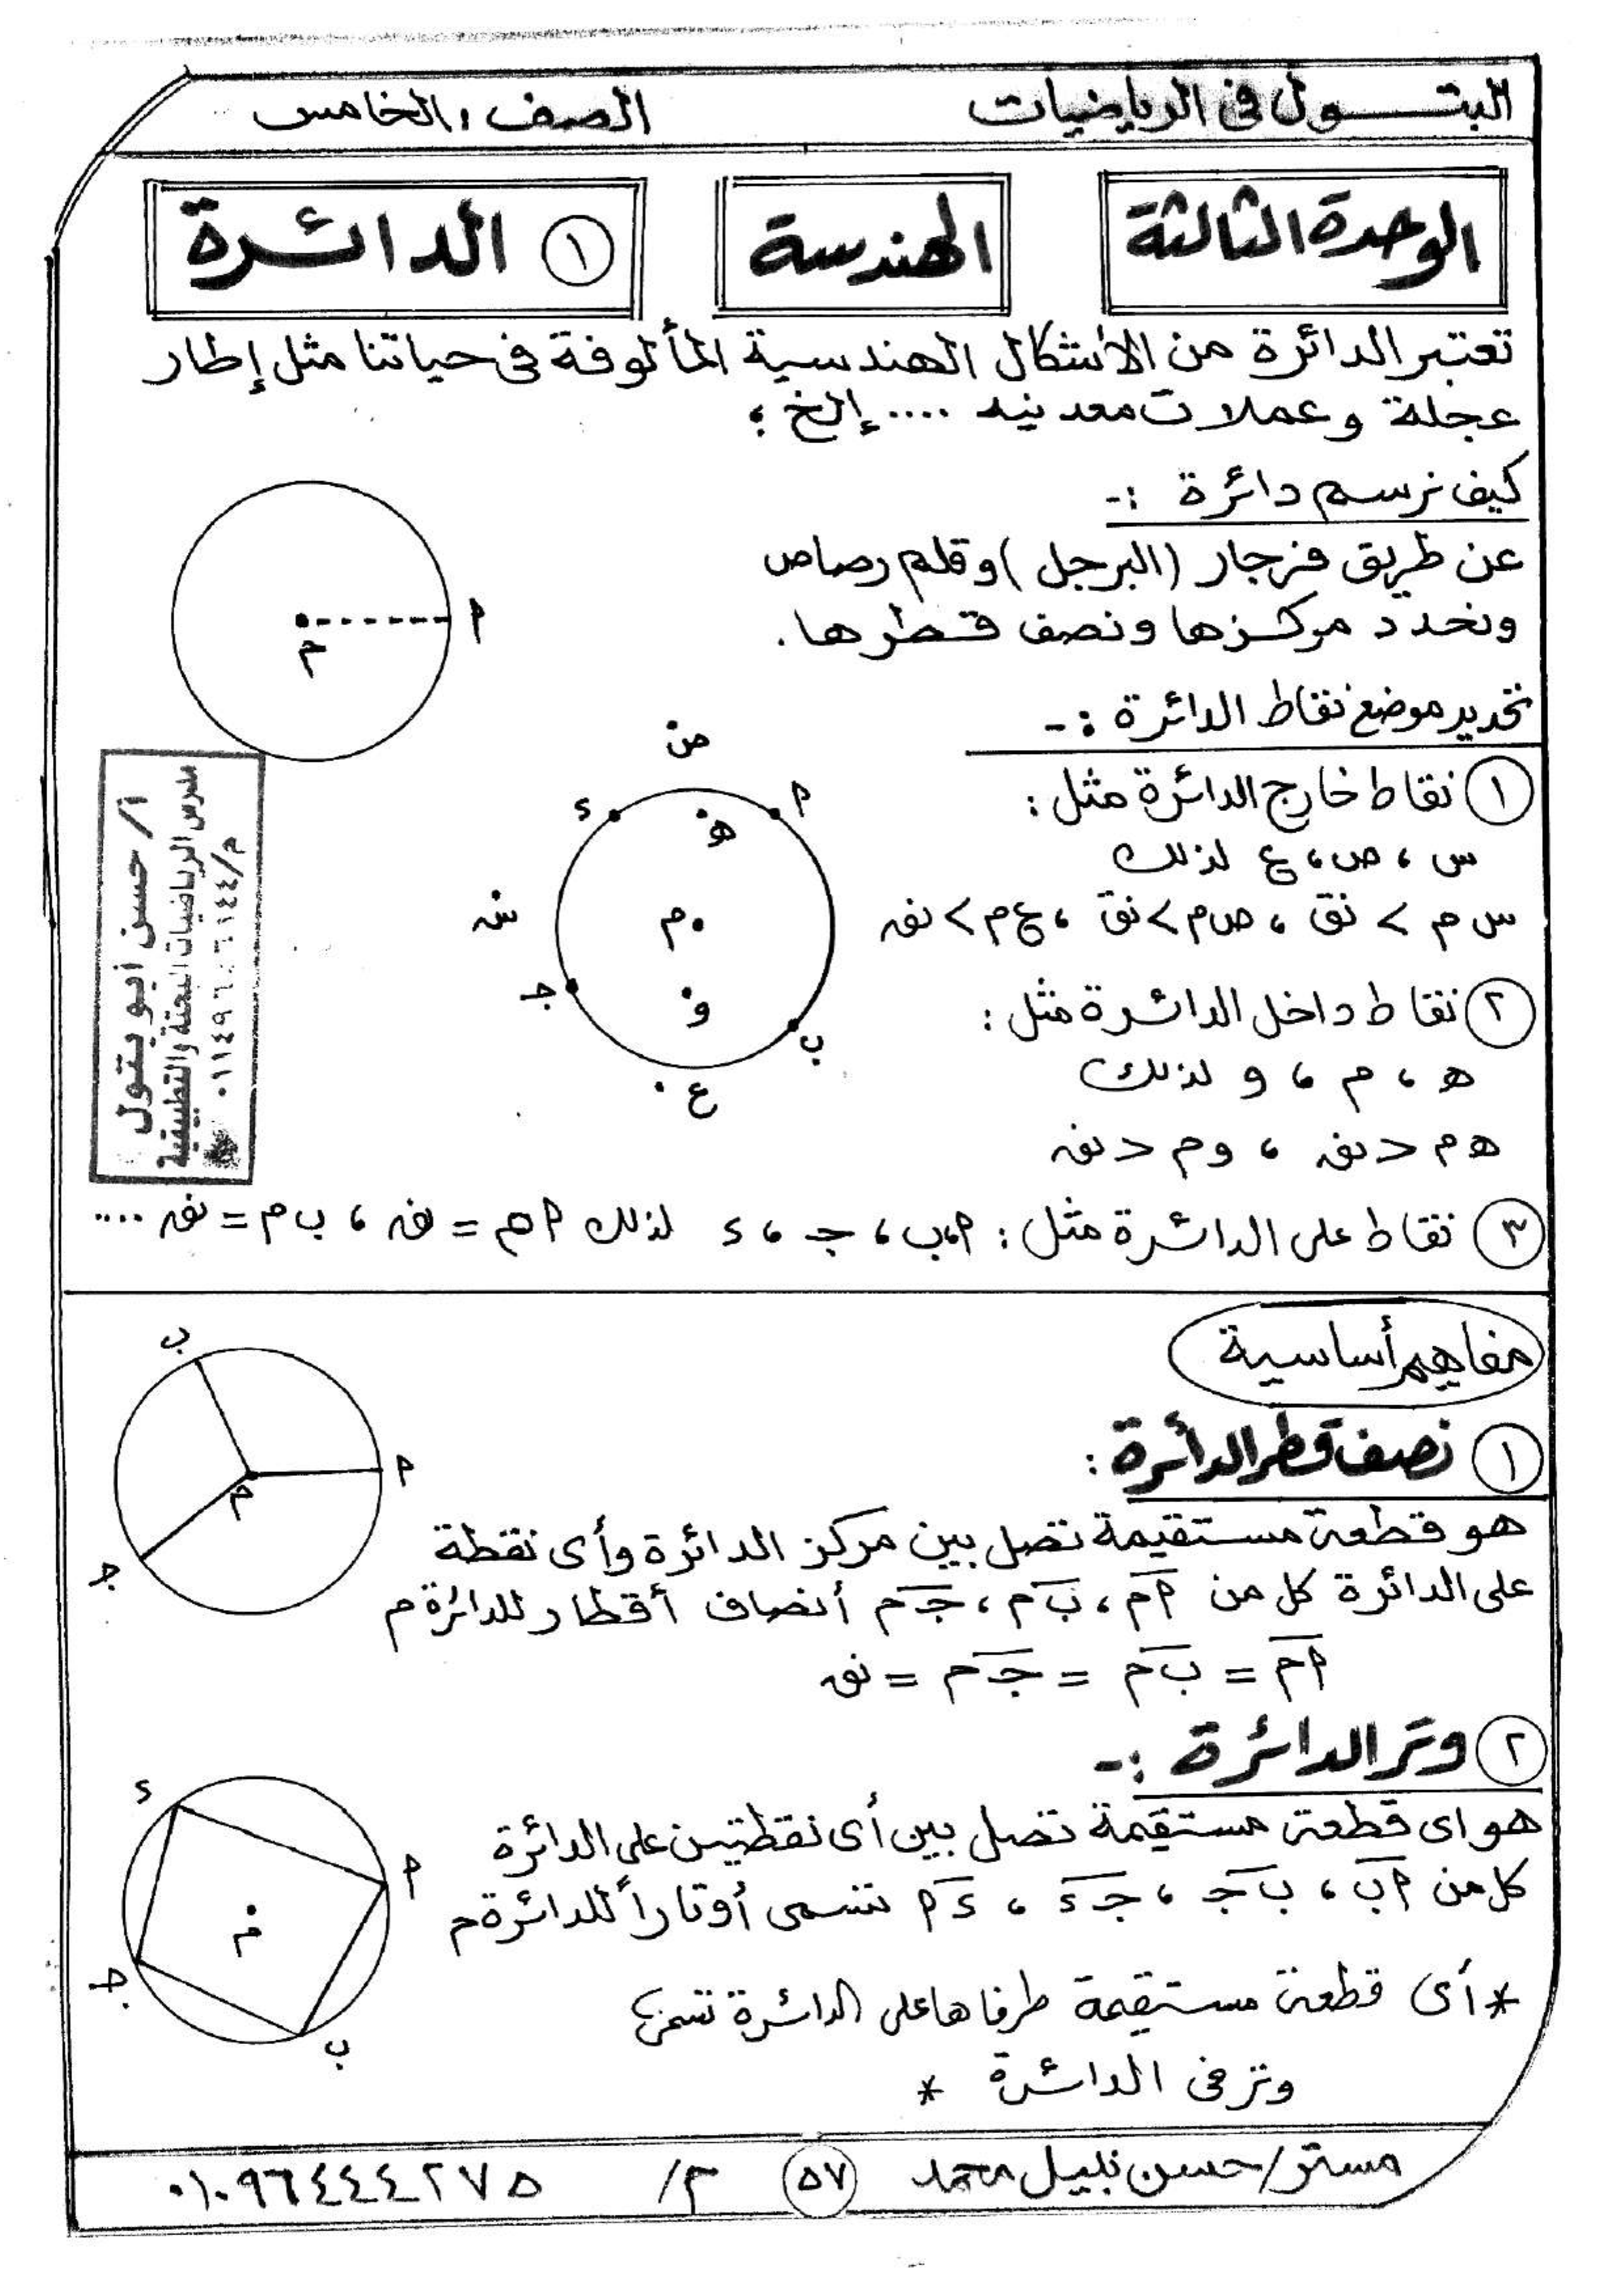 البتول فى الرياضيات
الصف الخامس
الوحدة الثالثة
الهندسة
١ الدائرة
تعتبر الدائرة من الأشكال الهندسية المألوفة فى حياتنا مثل إطار
عجلة وعملات معدنيه .... إلخ ؛
كيف نرسم دائرة :-
عن طريق فرجار (البرجل) وقلم رصاص
ونحدد مركزها ونصف قطرها.
م
أ
تحديد موضع نقاط الدائرة :-
١ نقاط خارج الدائرة مثل :
س ، ص ، ع لذلك
س م > نق ، ص م > نق ، ع م > نق
٢ نقاط داخل الدائرة مثل :
ه ، م ، و لذلك
ه م < نق ، و م < نق
٣ نقاط على الدائرة مثل : أ، ب ، جـ ، ء لذلك أ م = نق ، ب م = نق ....
ص
ء
أ
ه
س
م
جـ
و
ب
ع
أ/ حسن أبو بتول
مدرس الرياضيات البحتة والتطبيقية
مفاهيم أساسية
١ نصف قطر الدائرة :
هو قطعة مستقيمة تصل بين مركز الدائرة وأى نقطة
على الدائرة كل من أ م ، ب م ، جـ م أنصاف أقطار للدائرة م
أ م = ب م = جـ م = نق
ب
أ
م
جـ
٢ وتر الدائرة :-
هو اى قطعة مستقيمة تصل بين أى نقطتين على الدائرة
كل من أ ب ، ب جـ ، جـ ء ، ء أ تسمى أوتاراً للدائرة م
* أى قطعة مستقيمة طرفاها على الدائرة تسمى
وتر فى الدائرة *
ء
أ
م
جـ
ب
مستر/ حسن نبيل محمد
٥٧
م/ ٠١٠٩٦٤٤٤٢٧٥